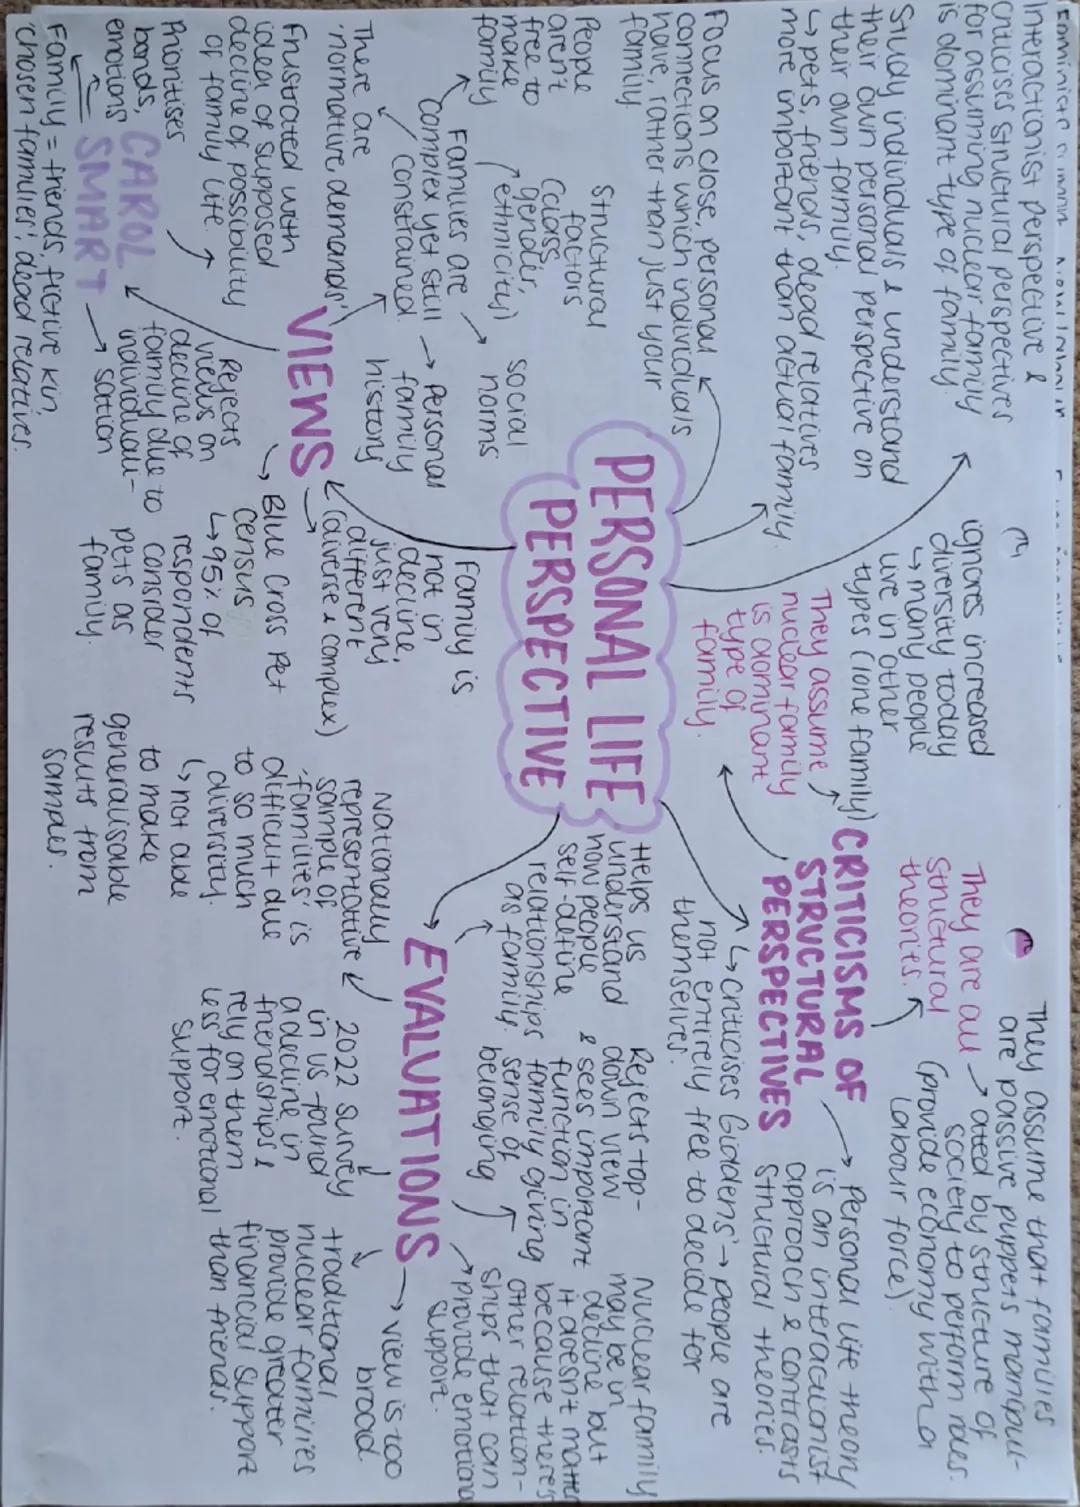 PERSONAL LIFE
PERSPECTIVE
Interactionist perspective &
criticises structural perspectives
for assuming nuclear family
is dominant type of family.
Study individuals & understand
their own personal perspective on
their own family.
↳ pets, friends, dead relatives
more important than actual family.
Focus on close, personal
connections which individuals
have, rather than just your
family
ignores increased
diversity today
↳ many people
live in other
types (lone family)
They assume
nuclear family
is dominant
type of
family.
CRITICISMS OF
STRUCTURAL
PERSPECTIVES
They are all
structural
theories.
They assume that families
are passive puppets manipul-
ated by structure of
society to perform roles.
(provide economy with a
labour force)
Personal life theory
is an interactionist
approach & contrasts
structural theories.
↳ criticises Giddens → people are
not entirely free to decide for
themselves.
VIEWS
Family is
not in
decline,
just very
different
(diverse & complex)
Families are
complex yet still
constained.
People
arent
free to
make
family
Structural
factors
(class,
gender,
ethnicity)
social
norms
Personal
family
history
There are
'normative demands'
Frustrated with
idea of supposed
decline of possibility
of family life.
Prioritises
bonds,
emotions
CAROL
SMART
Family = friends, fictive kin,
chosen families', dead relatives.
Rejects
views on
decline of
family due to
individuali-
sation
Blue Cross Pet
Census
↳ 95% of
respondents
consider
pets as
family.
EVALUATIONS
Helps us
understand
how people
self-define
relationships
as family.
Rejects top-
down view
& sees important
function in
family giving
sense of
belonging
Nuclear family
may be in
decline but
it doesn't matter
because there's
other relation-
ships that can
provide emotional
support.
view is too
broad.
traditional
nuclear families
provide greater
financial support
than friends.
2022 survey
in US found
a decline in
friendships &
rely on them
less for emotional
support.
Nationally
representative
sample of
'families' is
difficult due
to so much
diversity.
↳ not able
to make
generalisable
results from
samples.